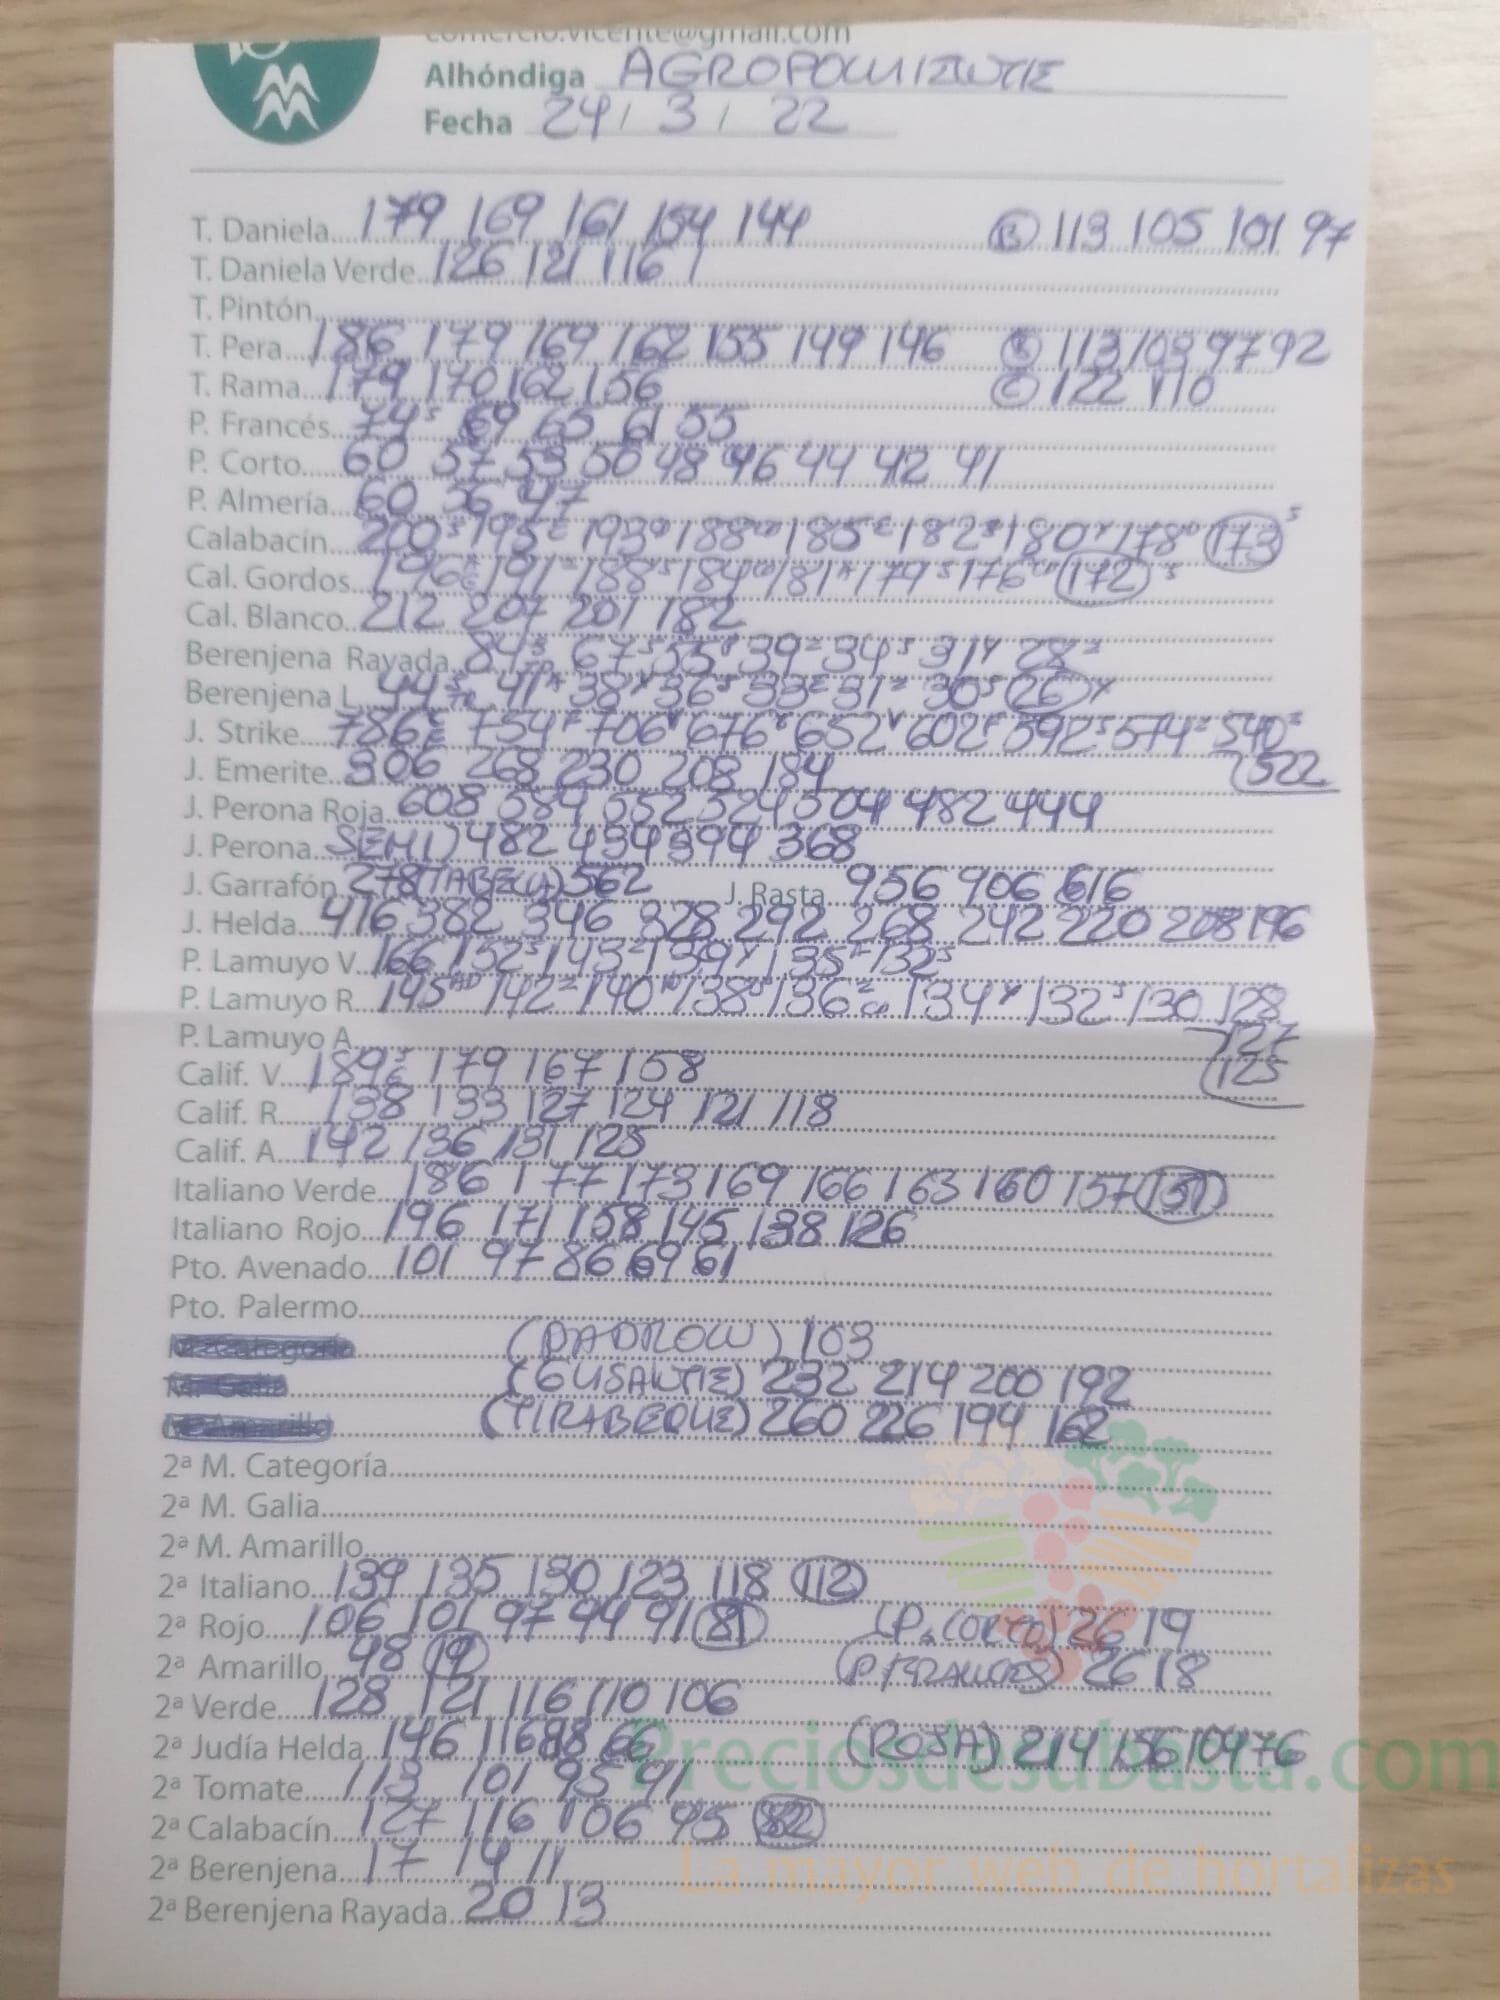 comercio.vicente@gmail.com
Alhóndiga AGROPONIENTE
Fecha 24 / 3 / 22
T. Daniela 179 169 161 154 144 (B) 113 105 101 97
T. Daniela Verde 126 121 116
T. Pintón
T. Pera 186 179 169 162 155 149 146 (B) 113 103 97 92
T. Rama 179 170 162 156 (C) 122 110
P. Francés 74 s 69 65 61 55
P. Corto 60 57 53 50 48 46 44 42 41
P. Almería 60 56 47
Calabacín 200 195 193 188 185 182 180 178 173
Cal. Gordos 196 191 188 184 181 179 176 172
Cal. Blanco 212 207 201 182
Berenjena Rayada 84 67 55 39 34 31 28
Berenjena L 44 41 38 36 33 31 30 26
J. Strike 786 754 706 676 652 602 592 574 540
522
J. Emerite 306 268 230 208 184
J. Perona Roja 608 584 552 524 504 482 444
J. Perona SEMI) 482 434 394 368
J. Garrafón 278 (TABELLA) 562 J. Rasta 956 906 616
J. Helda 416 382 346 328 292 268 242 220 208 196
P. Lamuyo V. 166 152 143 139 135 132
P. Lamuyo R. 145 142 140 138 136 134 132 130 128
127
P. Lamuyo A.
125
Calif. V. 189 179 167 158
Calif. R. 138 133 127 124 121 118
Calif. A. 142 136 131 125
Italiano Verde 186 177 173 169 166 163 160 157 151
Italiano Rojo 196 171 158 145 138 126
Pto. Avenado 101 97 86 69 61
Pto. Palermo
(PADRON) 103
(GUISANTE) 232 214 200 192
(TIRABEQUE) 260 226 194 162
2ª M. Categoría
2ª M. Galia
2ª M. Amarillo
2ª Italiano 139 135 130 123 118 112
2ª Rojo 106 101 97 94 91 81 (P. CORTO) 26 19
2ª Amarillo 48 19 (P. FRANCES) 26 18
2ª Verde 128 121 116 110 106
2ª Judía Helda 146 116 88 66 (ROJA) 214 156 104 76
Preciosdesubasta.com
2ª Tomate 113 101 95 91
2ª Calabacín 127 116 106 95 82
La mayor web de hortalizas
2ª Berenjena 17 14 11
2ª Berenjena Rayada 20 13